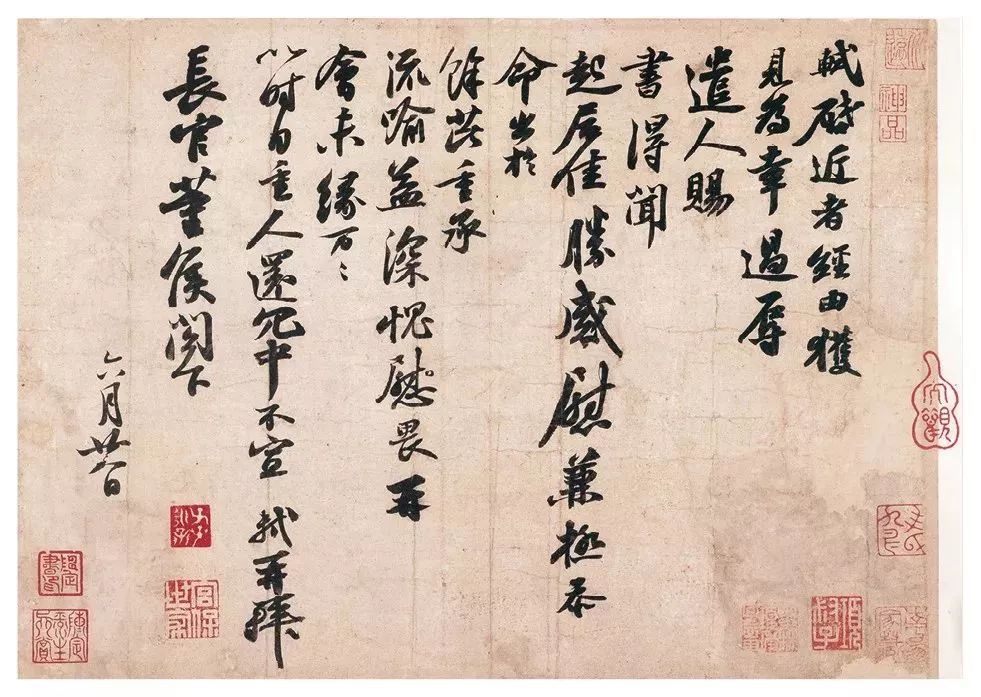 軾啓近者經由獲
見爲幸過辱
遣人賜
書得聞
起居佳勝感慰兼極忝
命出於
餘芘重承
流喻益深愧慰畏再
會未緣万〻
以時自重人還冗中不宣 軾再拜
長官董侯閤下
六月廿八日
神品